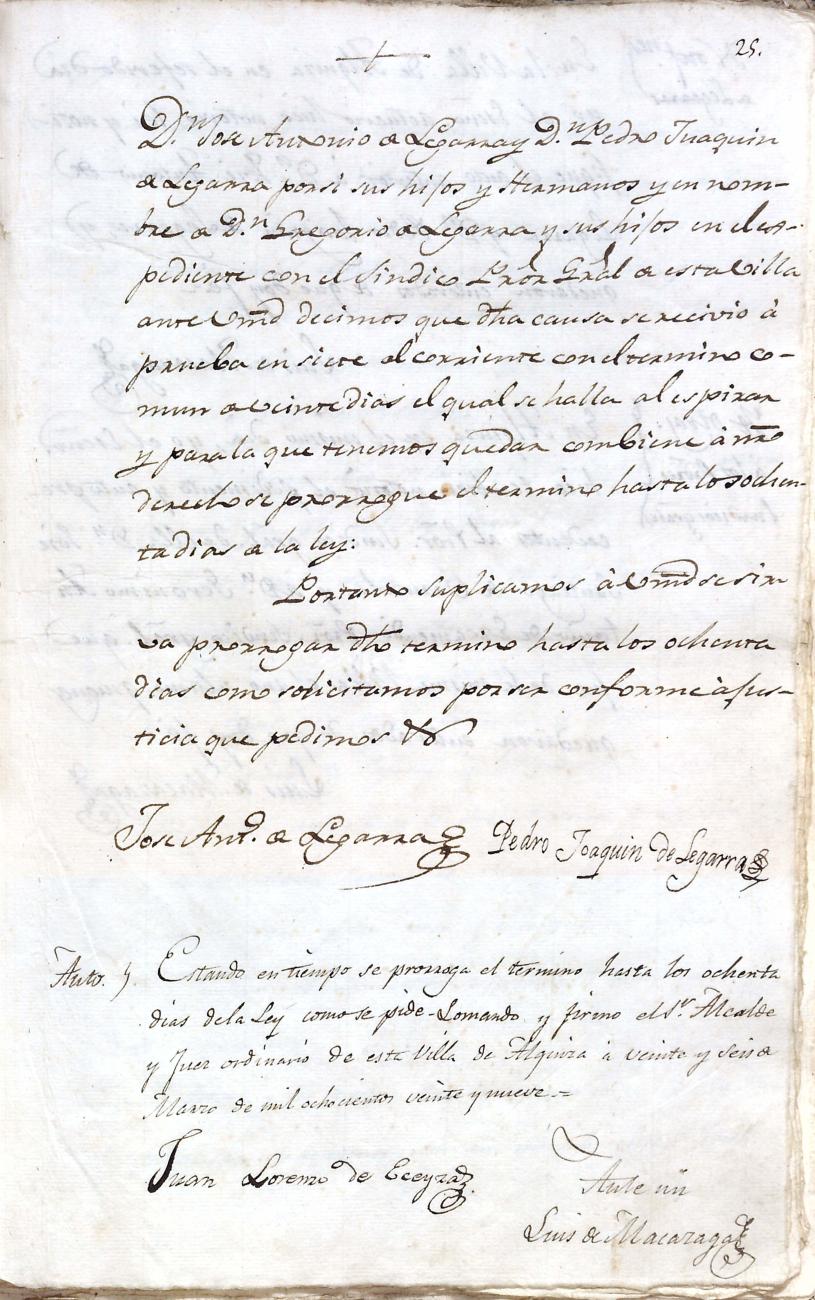 25.
D.n Jose Antonio de Legarra y D.n Pedro Juaquin
de Legarra por si sus hijos y Hermanos y en nom-
bre de D.n Gregorio de Legarra y sus hijos en el es-
pediente con el Sindico Pror Gral de esta Villa
ante Vmd decimos que dha causa se recivio à
prueba en siete del corriente con el termino co-
mun de veinte dias el qual se halla al espirar
y para la que tenemos que dar combiene à nro
derecho se prorrogue el termino hasta los ochen-
ta dias de la ley:
Por tanto suplicamos à Vmd se sir-
va prorrogar dho termino hasta los ochenta
dias como solicitamos por ser conforme à jus-
ticia que pedimos &
Jose Ant.o de Legarra Pedro Joaquin de Legarra
Auto. Estando en tiempo se prorroga el termino hasta los ochenta
dias de la Ley como se pide. Lo mando y firmo el S.r Alcalde
y Juez ordinario de esta Villa de Alquiza à veinte y seis de
Marzo de mil ochocientos veinte y nueve =
Juan Lorenzo de Eceyza
Ante mi
Luis de Macazaga